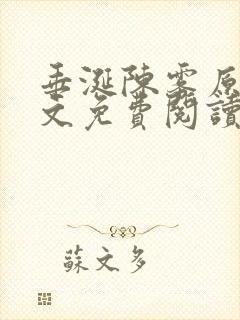 垂涎陳霧原
文免費閱讀
蘇文多